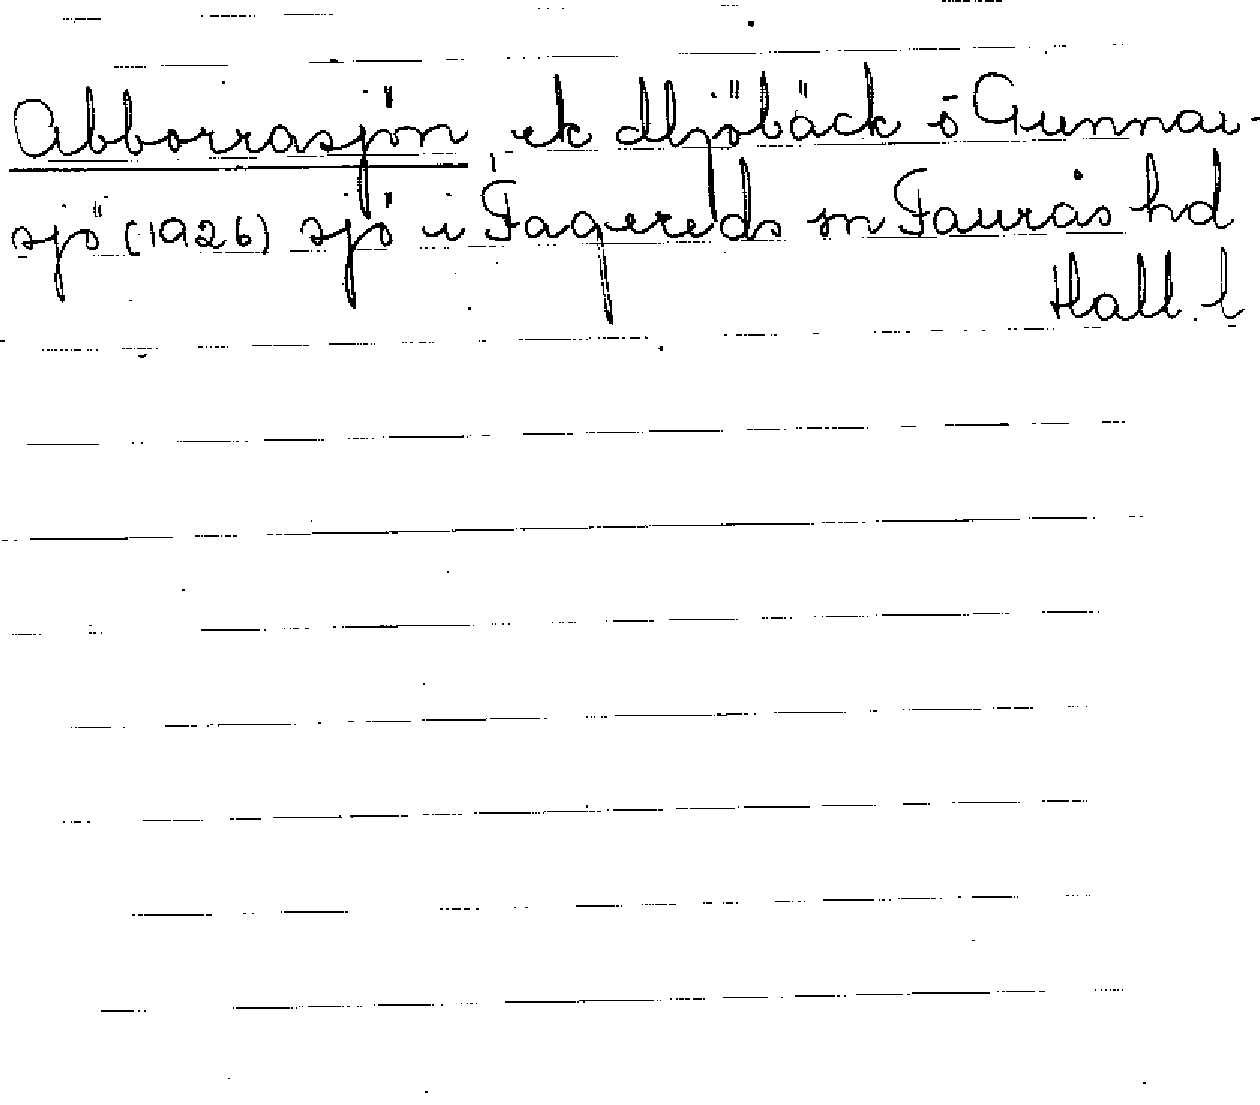 Abborrasjön ek Mjöbäck o Gunnar-
sjö (1926) sjö i Fagereds sn Faurås hd
Hall. l